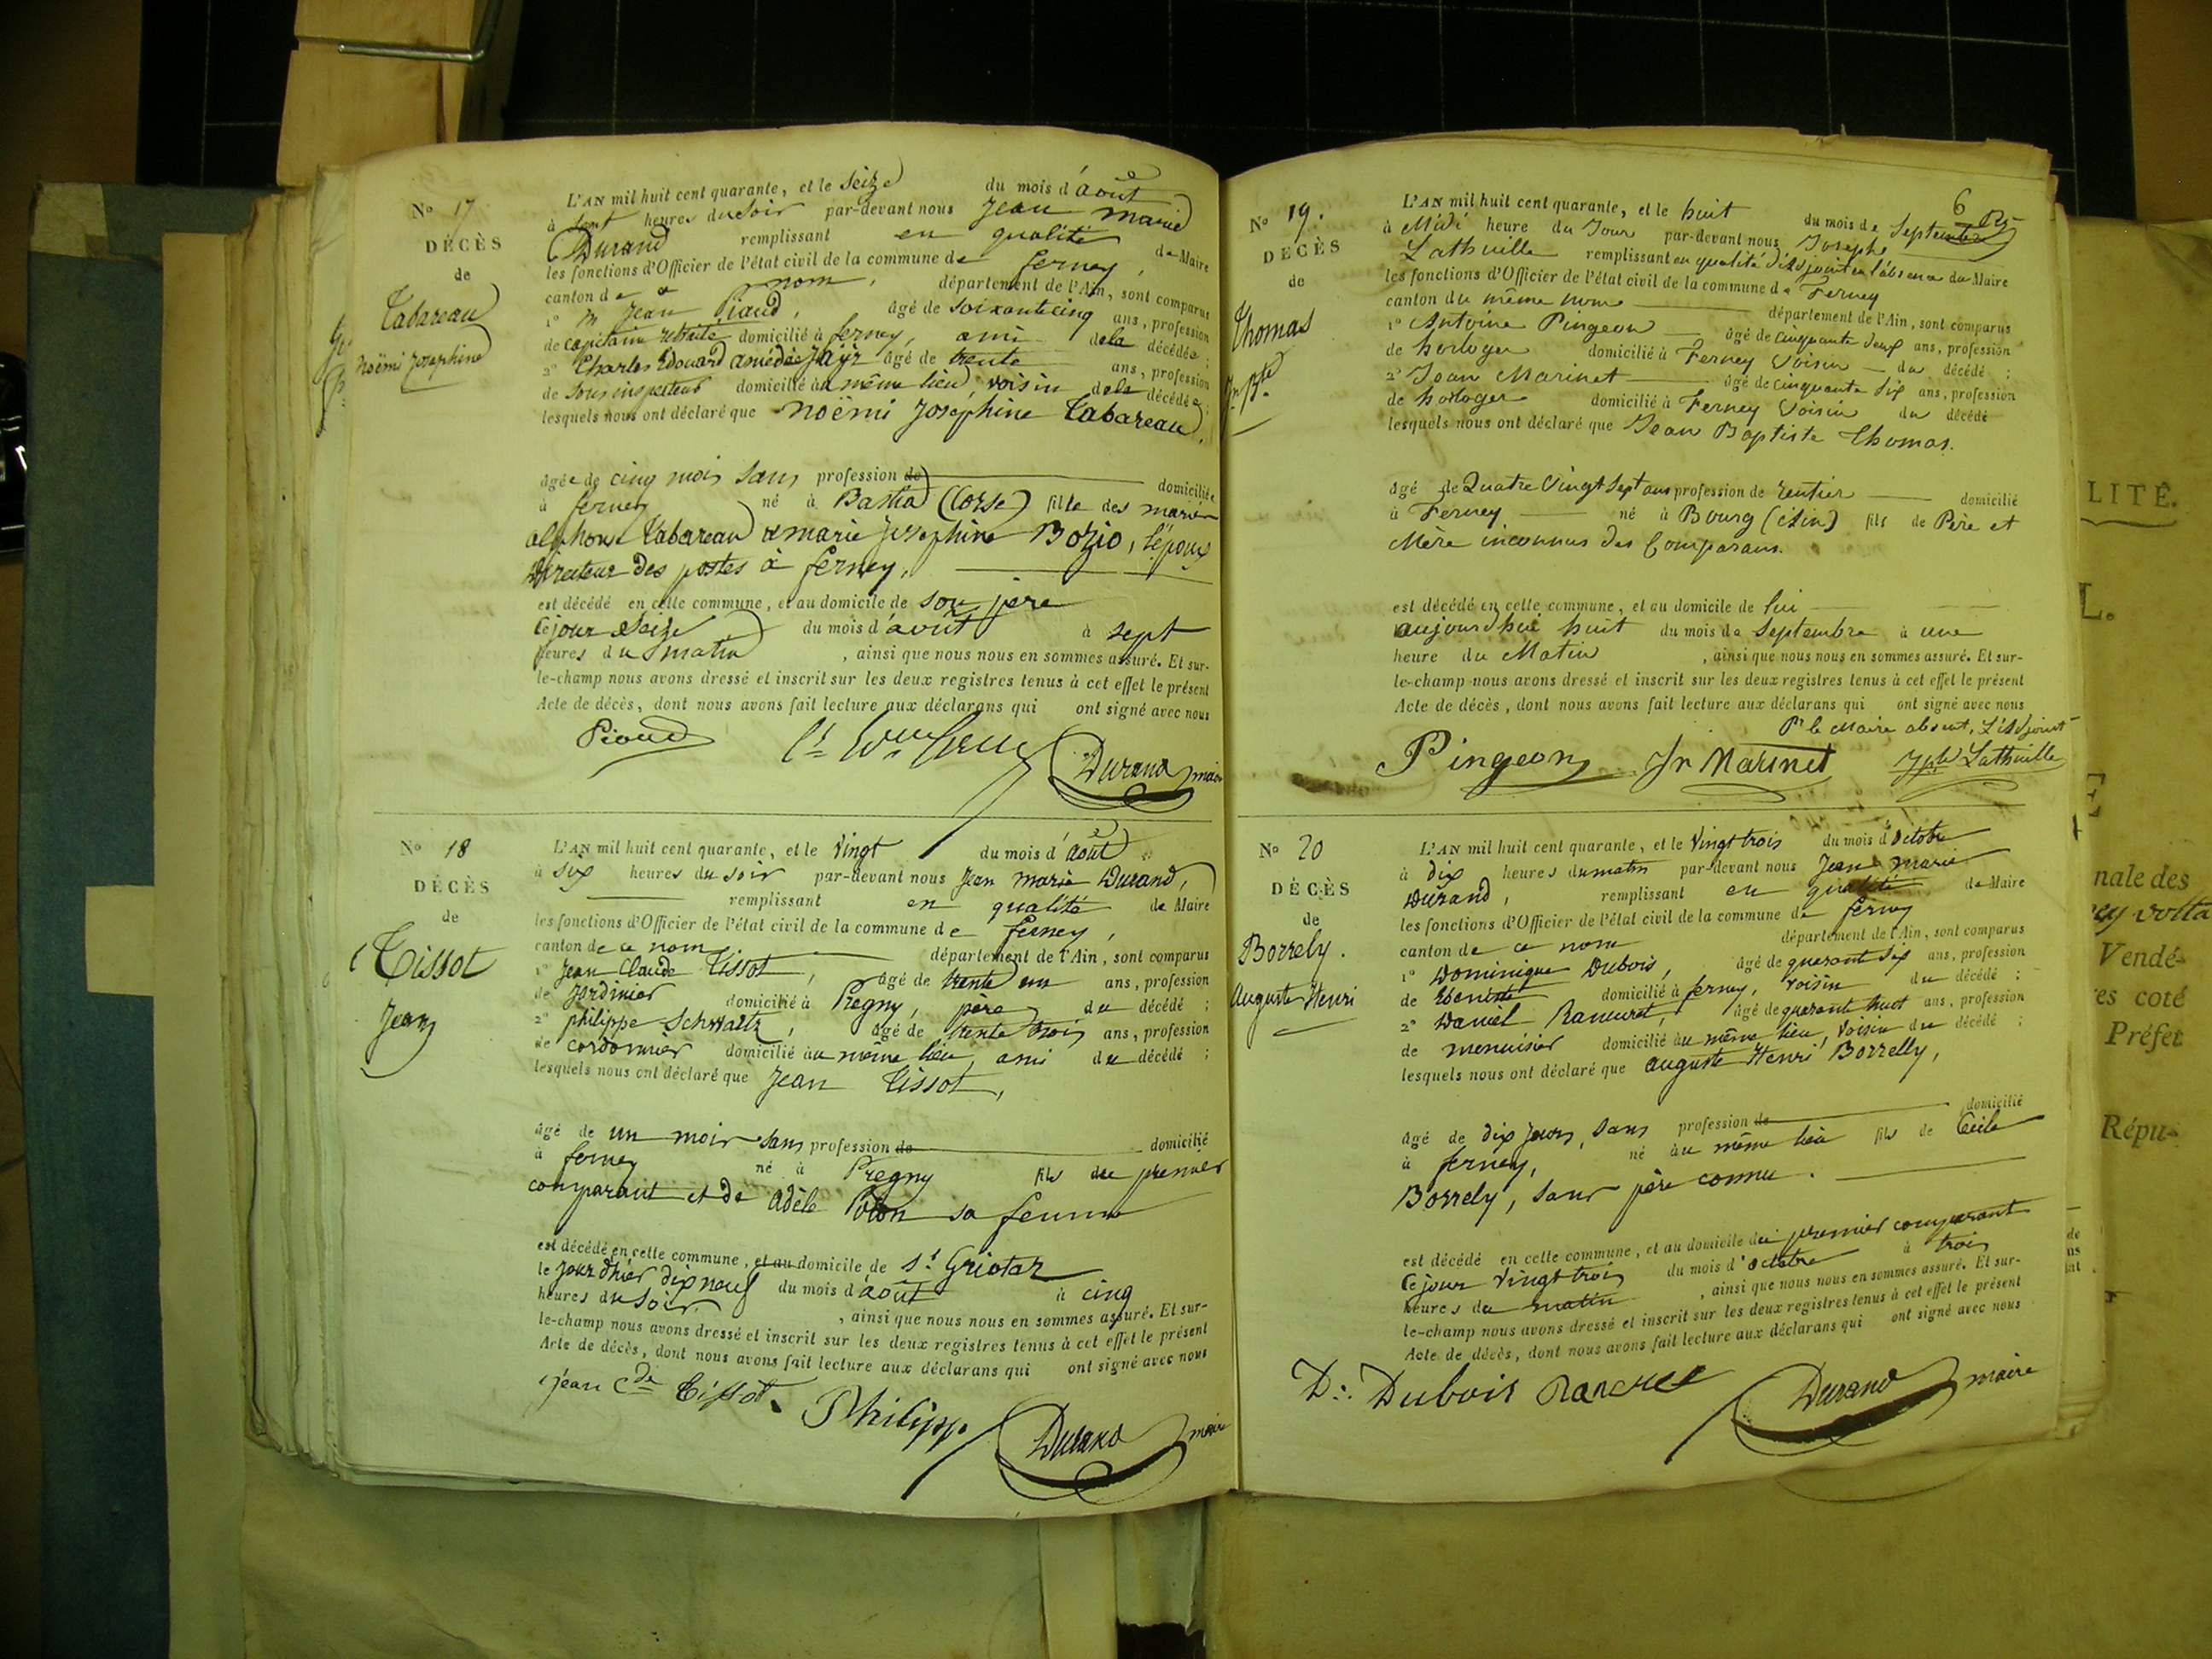 N° 17
DÉCÈS
de
Tabareau
Noëmi Josephine
L'AN mil huit cent quarante, et le Seize du mois d'août
à sept heures du soir par-devant nous Jean Marie
Durand remplissant en qualité de Maire
les fonctions d'Officier de l'état civil de la commune de ferney,
canton de nom, département de l'Ain, sont comparus
1° M Jean Piaud, âgé de soixante cinq ans, profession
de capitaine retraité domicilié à ferney, ami de la décédée;
2° Charles Edouard amédée âgé de trente ans, profession
de sous inspecteur domicilié au même lieu, voisin de la décédée;
lesquels nous ont déclaré que Noëmi Josephine Tabareau,
âgée de cinq mois sans profession de domiciliée
à ferney né à Bastia (Corse) fille des mariés
alphonse Tabareau & marie josephine Bozio, l'époux
directeur des postes à ferney,
est décédé en cette commune, et au domicile de son père
Ce jour Seize du mois d'août à sept
heures du matin, ainsi que nous nous en sommes assuré. Et sur-
le-champ nous avons dressé et inscrit sur les deux registres tenus à cet effet le présent
Acte de décès, dont nous avons fait lecture aux déclarans qui ont signé avec nous
Piaud Durand maire
N° 18
DÉCÈS
de
Tissot
Jean
L'AN mil huit cent quarante, et le vingt du mois d'août
à six heures du soir par-devant nous Jean marie Durand,
remplissant en qualité de Maire
les fonctions d'Officier de l'état civil de la commune de ferney,
canton de ce nom département de l'Ain, sont comparus
1° Jean Claude Tissot, âgé de trente un ans, profession
de Jardinier domicilié à Pregny, père du décédé;
2° philippe Schwaltz, âgé de trente trois ans, profession
de cordonnier domicilié au même lieu, ami du décédé;
lesquels nous ont déclaré que Jean Tissot,
âgé de un mois sans profession de domicilié
à ferney né à Pregny fils du premier
comparant et de adèle sa femme
est décédé en cette commune, et au domicile de Sr Griotaz
le jour d'hier dix neuf du mois d'août à cinq
heures du soir, ainsi que nous nous en sommes assuré. Et sur-
le-champ nous avons dressé et inscrit sur les deux registres tenus à cet effet le présent
Acte de décès, dont nous avons fait lecture aux déclarans qui ont signé avec nous
jean Cde Tissot Philippe Durand maire
6
N° 19.
DÉCÈS
de
Thomas
Jn Bte
L'AN mil huit cent quarante, et le huit du mois de Septembre
à Midi heure du Jour par-devant nous Josephe
Lathuille remplissant en qualité d'Adjoint en l'absence du Maire
les fonctions d'Officier de l'état civil de la commune de Ferney
canton du même nom département de l'Ain, sont comparus
1° Antoine Pingeon âgé de cinquante deux ans, profession
de horloger domicilié à Ferney Voisin du décédé;
2° Jean Marinet âgé de cinquante six ans, profession
de horloger domicilié à Ferney Voisin du décédé
lesquels nous ont déclaré que Jean Baptiste Thomas.
âgé de Quatre Vingt Sept ans profession de rentier domicilié
à Ferney né à Bourg (Ain) fils de Père et
Mère inconnus des Comparans.
est décédé en cette commune, et au domicile de lui
aujourdhui huit du mois de Septembre à une
heure du Matin, ainsi que nous nous en sommes assuré. Et sur-
le-champ nous avons dressé et inscrit sur les deux registres tenus à cet effet le présent
Acte de décès, dont nous avons fait lecture aux déclarans qui ont signé avec nous
Pr le Maire absent, L'Adjoint
Pingeon Jn Marinet Jph Lathuille
N° 20
DÉCÈS
de
Borrely.
Auguste Henri
L'AN mil huit cent quarante, et le vingt trois du mois d'octobre
à dix heures du matin par-devant nous Jean marie
Durand, remplissant en qualité de Maire
les fonctions d'Officier de l'état civil de la commune de ferney
canton de ce nom département de l'Ain, sont comparus
1° Dominique Dubois, âgé de quarante six ans, profession
de Ebéniste domicilié à ferney, voisin du décédé;
2° Daniel âgé de quarante huit ans, profession
de menuisier domicilié au même lieu, voisin du décédé;
lesquels nous ont déclaré que auguste Henri Borrelly,
âgé de dix jours, sans profession de domicilié
à ferney, né au même lieu fils de Cécile
Borrely, sans père connu.
est décédé en cette commune, et au domicile du premier comparant
Ce jour vingt trois du mois d'octobre à trois
heures du matin, ainsi que nous nous en sommes assuré. Et sur-
le-champ nous avons dressé et inscrit sur les deux registres tenus à cet effet le présent
Acte de décès, dont nous avons fait lecture aux déclarans qui ont signé avec nous
D. Dubois Durand maire
LITÉ.
L.
nale des
Vendé-
es coté
Préfet
Répu-